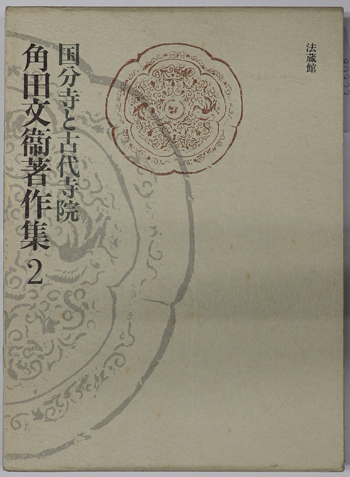 法蔵館
国分寺と古代寺院
角田文衞著作集2